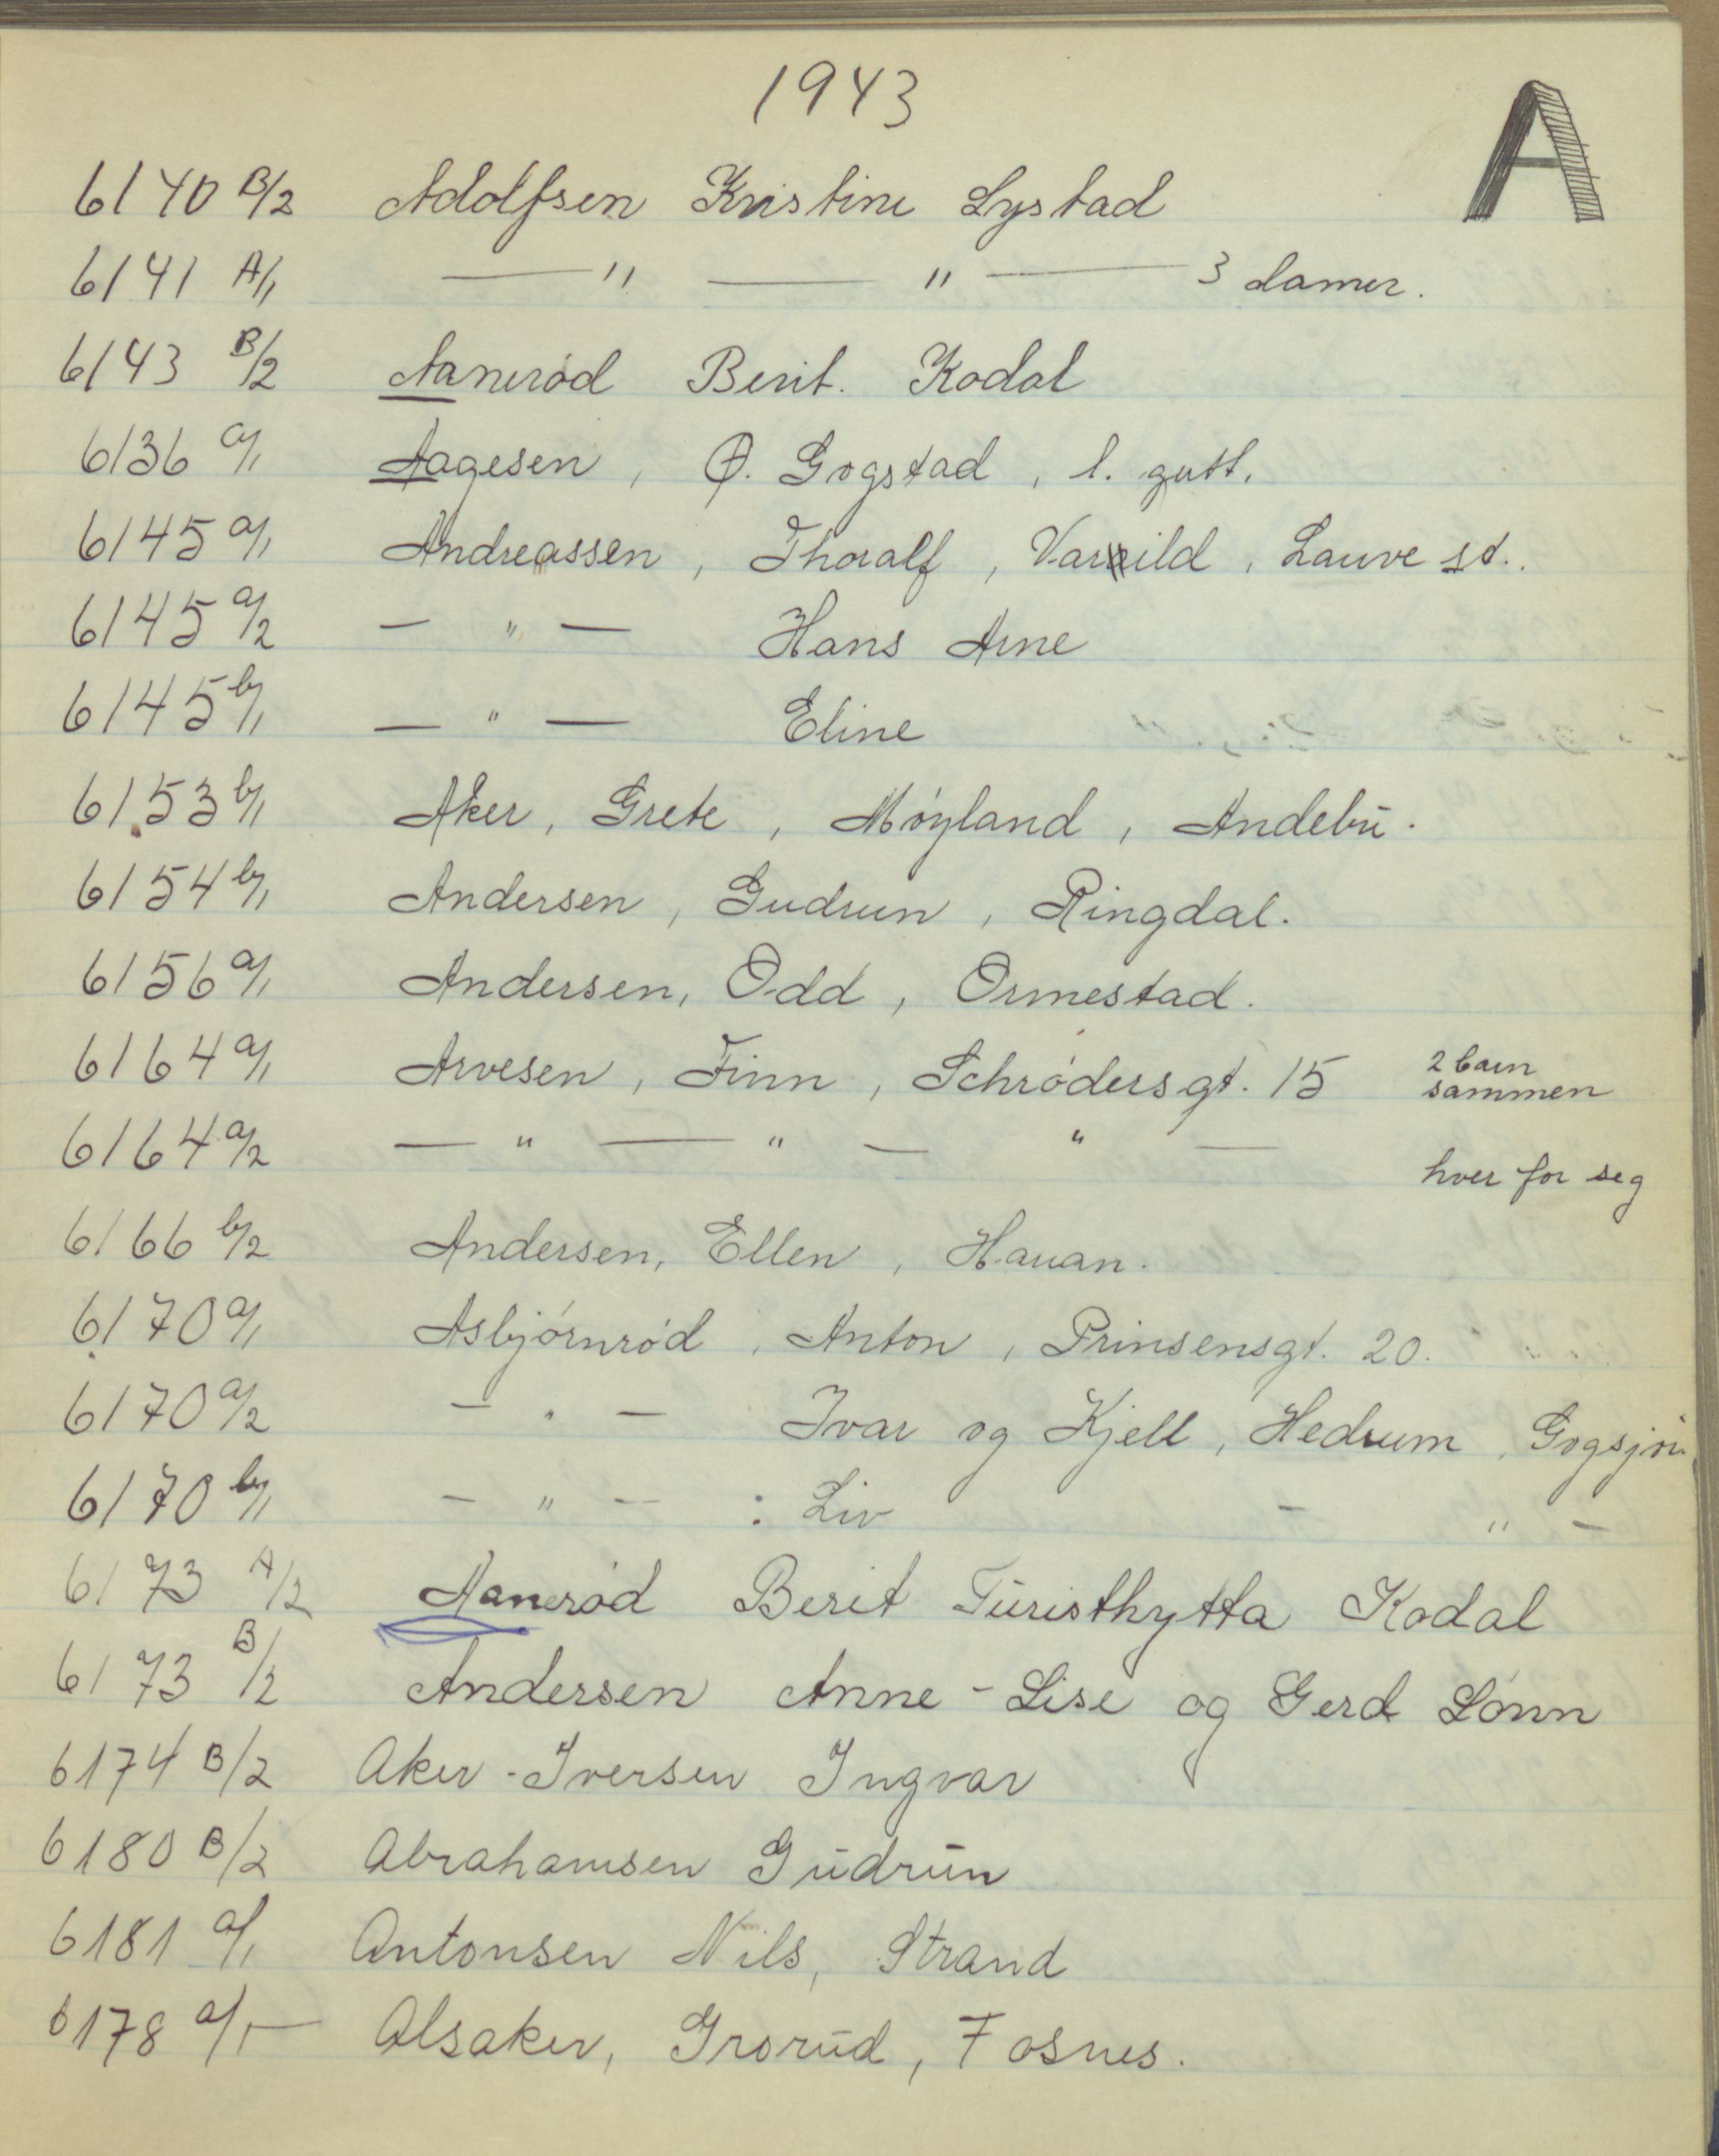 1943
A
6140 B/2 Adolfsen Kristine Lystad
6141 A/1 — " — " — 3 damer.
6143 B/2 Aanerød Berit. Kodal
6136 a/1 Aagesen, Ø. Gogstad, l. gutt.
6145 a/1 Andreassen, Thoralf, Varild, Lauve st..
6145 a/2 — " — Hans Arne
6145 b/1 — " — Eline
6153 b/1 Aker, Grete, Møyland, Andebu.
6154 b/1 Andersen, Gudrun, Ringdal.
6156 a/1 Andersen, Odd, Ormestad.
6164 a/1 Arvesen, Finn, Schrødersgt. 15 2 barn sammen
6164 a/2 — " — " — " — hver for seg
6166 b/2 Andersen, Ellen, Hauan.
6170 a/1 Asbjørnrød, Anton, Prinsensgt. 20.
6170 a/2 — " — Ivar og Kjell, Hedrum, Gogsjø
6170 b/1 — " — : Liv — " —
6173 A/2 Aanerød Berit Turisthytta Kodal
6173 B/2 Andersen Anne-Lise og Gerd Lønn
6174 B/2 Aker-Iversen Ingvar
6180 B/2 Abrahamsen Gudrun
6181 a/1 Antonsen Nils, Strand
6178 a/1 — Alsaker, Grorud, Fosnes.